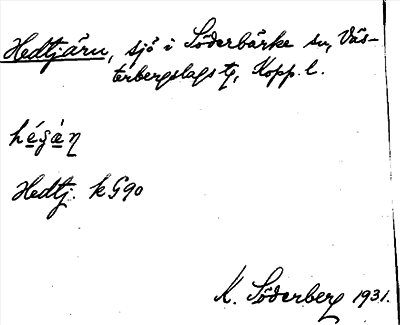 Hedtjärn, sjö i Söderbärke sn, Väs-
terbergslags tg, Kopp. l.
Hedtj. kG90
K. Söderberg 1931.